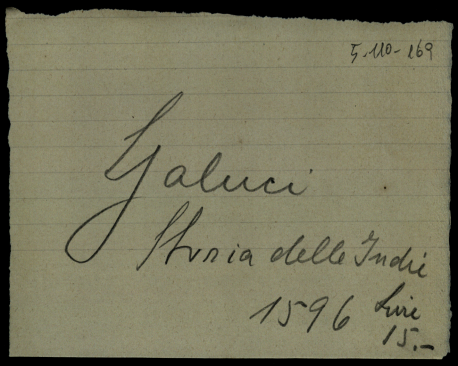 5-110-169
Galuci
Storia delle Indie
1596 Lire
15.-